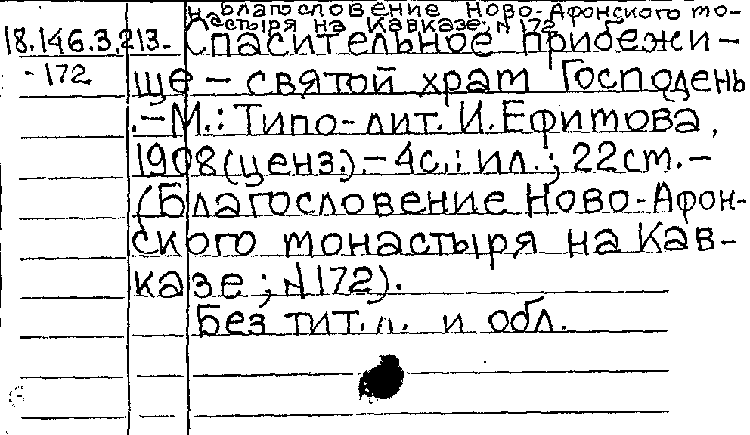 Н. Благословение Ново-Афонского мо-
настыря на Кавказе; N 172
18.146.3.213- Спасительное прибежи-
-172 ще - святой храм Господень
.-М.: Типо-лит. И.Ефимова,
1908(ценз.).-4с.: ил.; 22см.-
(Благословение Ново-Афон-
ского монастыря на Кав-
казе; N172).
Без тит.л. и обл.